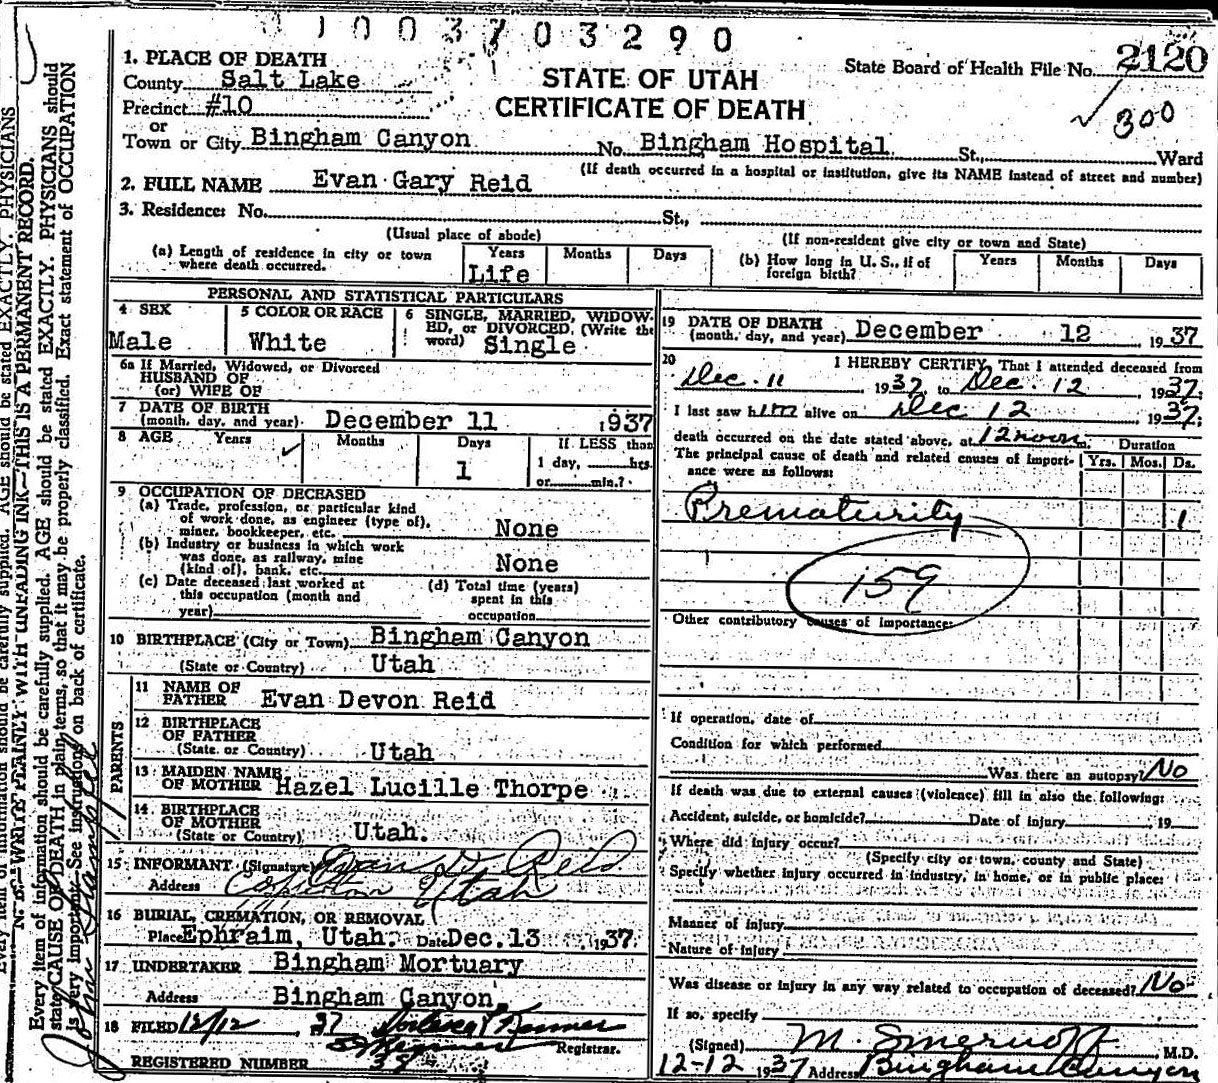 1003703290
1. PLACE OF DEATH
County Salt Lake
Precinct #10
or
Town or City Bingham Canyon
STATE OF UTAH
CERTIFICATE OF DEATH
State Board of Health File No. 2120
300
No. Bingham Hospital St., Ward
(If death occurred in a hospital or institution, give its NAME instead of street and number)
2. FULL NAME Evan Gary Reid
3. Residence: No. St.,
(Usual place of abode)
(If non-resident give city or town and State)
(a) Length of residence in city or town where death occurred. Years Months Days
Life
(b) How long in U. S., if of foreign birth? Years Months Days
PERSONAL AND STATISTICAL PARTICULARS
4 SEX
Male
5 COLOR OR RACE
White
6 SINGLE, MARRIED, WIDOW-
ED, or DIVORCED, (Write the
word) Single
6a If Married, Widowed, or Divorced
HUSBAND OF
(or) WIFE OF
7 DATE OF BIRTH
(month, day, and year) December 11 1937
8 AGE Years Months Days If LESS than
1
1 day, hrs.
or min.?
9 OCCUPATION OF DECEASED
(a) Trade, profession, or particular kind
of work done, as engineer (type of),
miner, bookkeeper, etc. None
(b) Industry or business in which work
was done, as railway, mine
(kind of), bank, etc. None
(c) Date deceased last worked at
this occupation (month and
year)
(d) Total time (years)
spent in this
occupation
10 BIRTHPLACE (City or Town) Bingham Canyon
(State or Country) Utah
PARENTS
11 NAME OF
FATHER Evan Devon Reid
12 BIRTHPLACE
OF FATHER
(State or Country) Utah
13 MAIDEN NAME
OF MOTHER Hazel Lucille Thorpe
14 BIRTHPLACE
OF MOTHER
(State or Country) Utah.
15 INFORMANT (Signature) Evan D. Reid
Address Copperton Utah
16 BURIAL, CREMATION, OR REMOVAL
Place Ephraim, Utah. Date Dec. 13, 1937
17 UNDERTAKER Bingham Mortuary
Address Bingham Canyon
18 FILED 12/12, 37
Registrar.
REGISTERED NUMBER 38
19 DATE OF DEATH
(month, day, and year) December 12 1937
20 I HEREBY CERTIFY, That I attended deceased from
Dec. 11 1937, to Dec. 12, 1937.
I last saw him alive on Dec 12 1937;
death occurred on the date stated above, at 12 noon.
Duration
The principal cause of death and related causes of import-
ance were as follows:
Yrs. Mos. Ds.
Prematurity 1
159
Other contributory causes of importance:
If operation, date of
Condition for which performed
Was there an autopsy? No
If death was due to external causes (violence) fill in also the following:
Accident, suicide, or homicide? Date of injury , 19
Where did injury occur?
(Specify city or town, county and State)
Specify whether injury occurred in industry, in home, or in public place:
Manner of injury
Nature of injury
Was disease or injury in any way related to occupation of deceased? No
If so, specify
(Signed) M. , M.D.
12-12 1937 Address Bingham Canyon
N. B.—WRITE PLAINLY WITH UNFADING INK—THIS IS A PERMANENT RECORD.
Every item of information should be carefully supplied. AGE should be stated EXACTLY. PHYSICIANS should
state CAUSE OF DEATH in plain terms, so that it may be properly classified. Exact statement of OCCUPATION
is very important. See instructions on back of certificate.